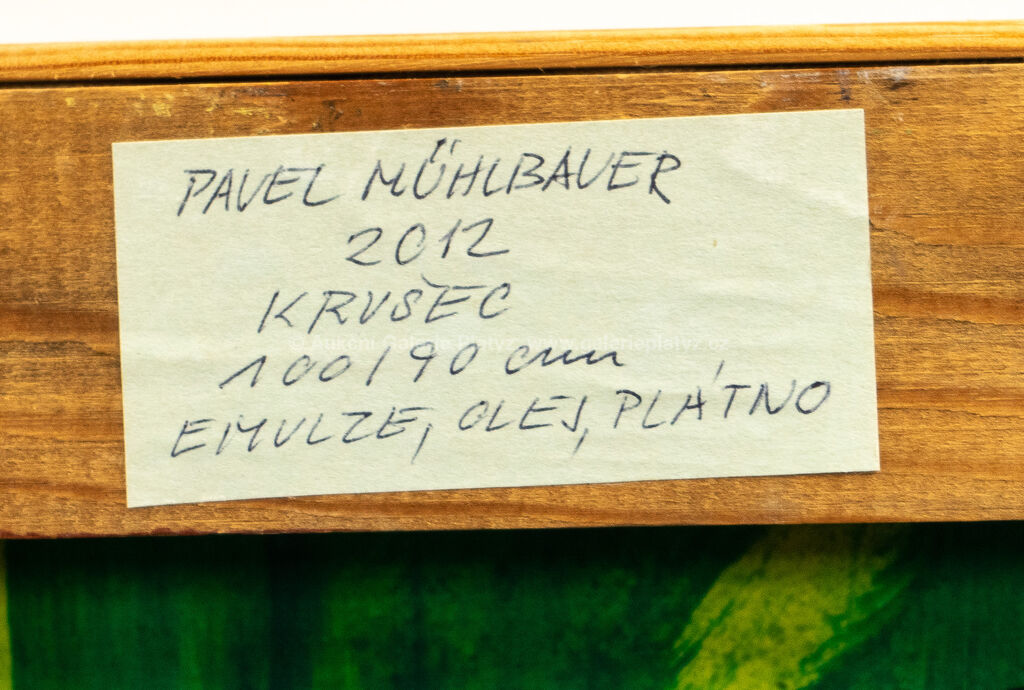 PAVEL MÜHLBAUER
2012
KRUŠEC
100/90 cm
© Aukční Galerie Platýz www.galerieplatyz.cz
EMULZE, OLEJ, PLÁTNO